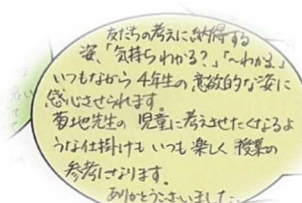 友だちの考えに納得する
姿、「気持ちわかる？」「〜わかる、」
いつもながら4年生の意欲的な姿に
感心させられます。
菊地先生の児童に考えさせたくなるよ
うな仕掛けもいつも楽しく授業の
参考になります。
ありがとうございました。